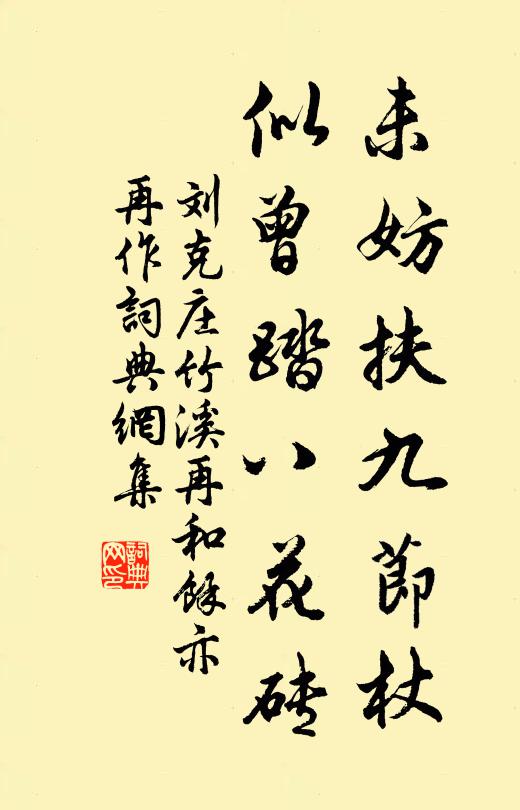 未妨扶九節杖
似曾踏八花砖
刘克庄竹溪再和餘亦
再作詞典網集
詞典网印